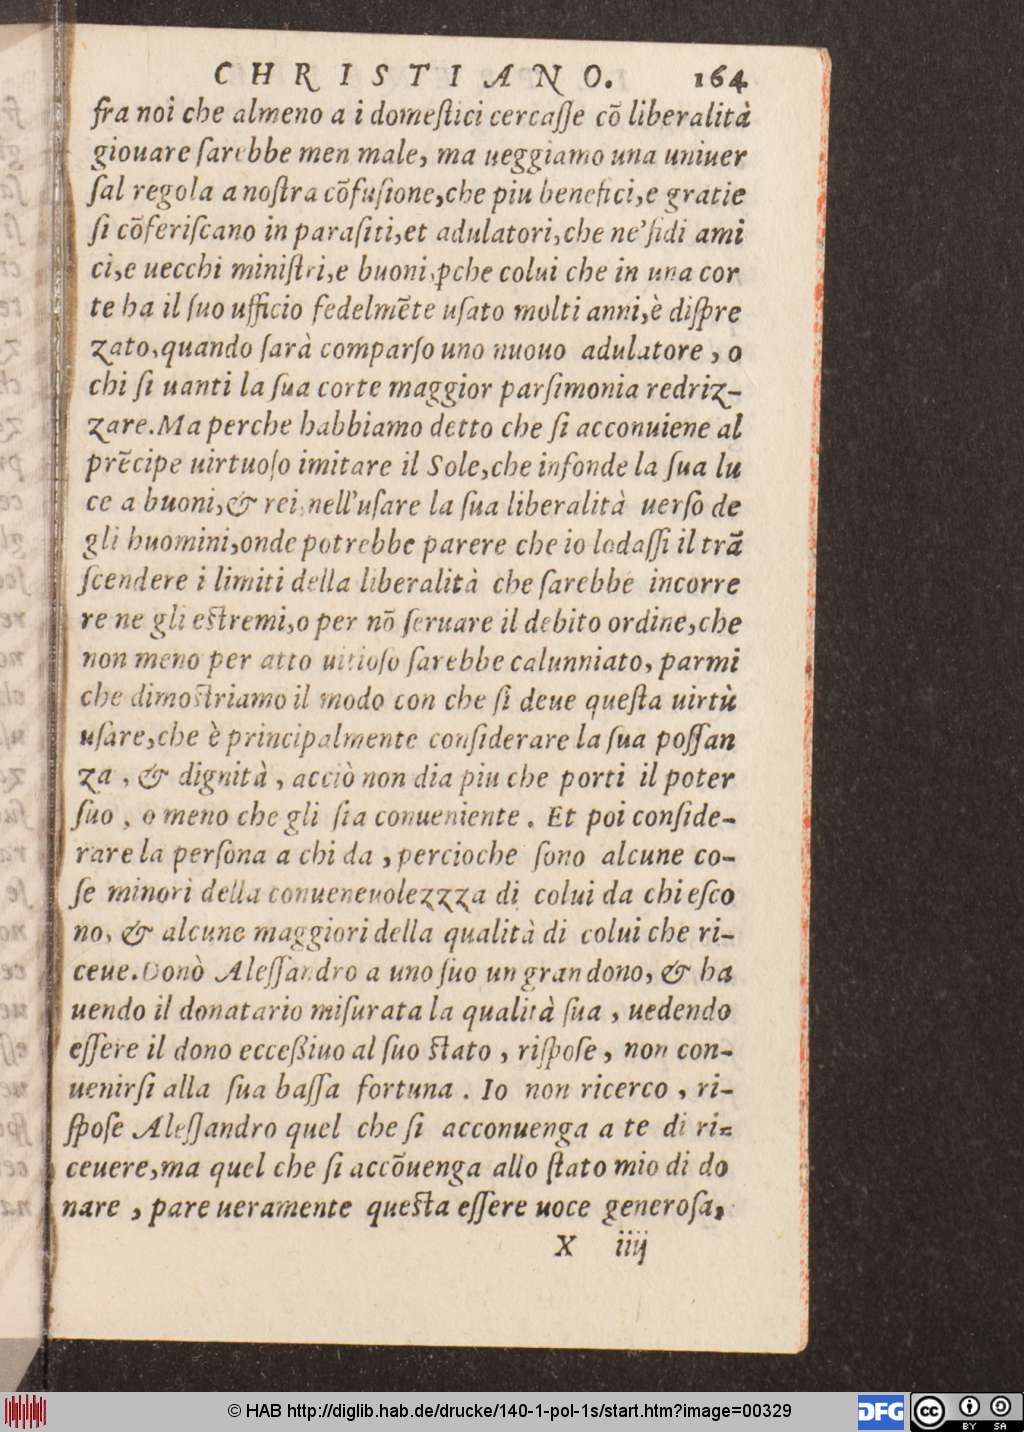 CHRISTIANO. 164
fra noi che almeno a i domeſtici cercaſſe cõ liberalità
giouare ſarebbe men male, ma ueggiamo una uniuer
ſal regola a noſtra cõfuſione,che piu benefici,e gratie
ſi cõferiſcano in paraſiti,et adulatori,che ne'fidi ami
ci,e uecchi miniſtri,e buoni,ꝑche colui che in una cor
te ha il ſuo ufficio fedelmẽte uſato molti anni,è diſpre
zato,quando ſarà comparſo uno nuouo adulatore, o
chi ſi uanti la ſua corte maggior parſimonia redriz-
zare.Ma perche habbiamo detto che ſi acconuiene al
prẽcipe uirtuoſo imitare il Sole,che infonde la ſua lu
ce a buoni,& rei,nell'uſare la ſua liberalità uerſo de
gli huomini,onde potrebbe parere che io lodaſſi il trã
ſcendere i limiti della liberalità che ſarebbe incorre
re ne gli eſtremi,o per nõ ſeruare il debito ordine,che
non meno per atto uitioſo ſarebbe calunniato, parmi
che dimoſtriamo il modo con che ſi deue queſta uirtù
uſare,che è principalmente conſiderare la ſua poſſan
za, & dignità, acciò non dia piu che porti il poter
ſuo, o meno che gli ſia conueniente. Et poi conſide-
rare la perſona a chi da, percioche ſono alcune co-
ſe minori della conueneuolezzza di colui da chi eſco
no, & alcune maggiori della qualità di colui che ri-
ceue.Donò Aleſſandro a uno ſuo un gran dono, & ha
uendo il donatario miſurata la qualità ſua, uedendo
eſſere il dono ecceßiuo al ſuo ſtato, riſpoſe, non con-
uenirſi alla ſua baſſa fortuna. Io non ricerco, ri-
ſpoſe Aleſſandro quel che ſi acconuenga a te di ri-
ceuere,ma quel che ſi accõuenga allo ſtato mio di do
nare, pare ueramente queſta eſſere uoce generoſa,
X iiij
© HAB http://diglib.hab.de/drucke/140-1-pol-1s/start.htm?image=00329
DFG
cc BY SA